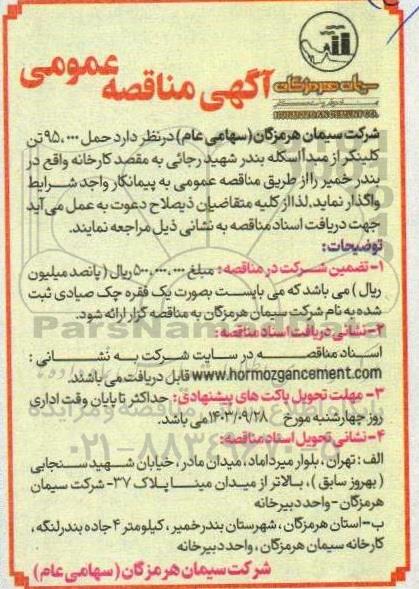 آگهی مناقصه عمومی
سیمان هرمزگان
HORMOZGAN CEMENT CO.
شرکت سیمان هرمزگان (سهامی عام) درنظر دارد حمل ۹۵،۰۰۰ تن
کلینکر از مبدأ اسکله بندر شهید رجائی به مقصد کارخانه واقع در
بندر خمیر را از طریق مناقصه عمومی به پیمانکار واجد شرایط
واگذار نماید. لذا از کلیه متقاضیان ذیصلاح دعوت به عمل می آید
جهت دریافت اسناد مناقصه به نشانی ذیل مراجعه نمایند.
توضیحات:
۱- تضمین شرکت در مناقصه: مبلغ ۵۰۰،۰۰۰،۰۰۰ ریال (پانصد میلیون
ریال) می باشد که می بایست بصورت یک فقره چک صیادی ثبت
شده به نام شرکت سیمان هرمزگان به مناقصه گزار ارائه شود.
۲- نشانی دریافت اسناد مناقصه:
اسناد مناقصه در سایت شرکت به نشانی :
www.hormozgancement.com قابل دریافت می باشند.
۳- مهلت تحویل پاکت های پیشنهادی: حداکثر تا پایان وقت اداری
روز چهارشنبه مورخ ۱۴۰۳/۰۹/۲۸ می باشد.
۴- نشانی تحویل اسناد مناقصه:
الف: تهران، بلوار میرداماد، میدان مادر، خیابان شهید سنجابی
(بهروز سابق)، بالاتر از میدان مینا پلاک ۳۷- شرکت سیمان
هرمزگان - واحد دبیرخانه
ب- استان هرمزگان، شهرستان بندر خمیر، کیلومتر ۴ جاده بندرلنگه،
کارخانه سیمان هرمزگان، واحد دبیرخانه
شرکت سیمان هرمزگان (سهامی عام)
ParsNamad
۰۲۱-۸۸۳۴۹۶۷۰